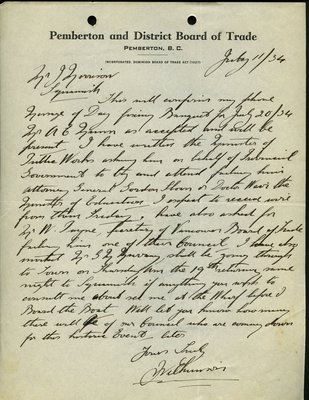 Pemberton and District Board of Trade
PEMBERTON, B. C.
INCORPORATED, DOMINION BOARD OF TRADE ACT (1927)
July 11/34
Mr J Morrison
Squamish
This will confirm my phone
of Day fixing Banquet for July 20/34
Mr A E has accepted and will be
present I have written the Minister of
Public Works asking him on behalf of Provincial
Government to try and attend failing him
attorney General Gordon Sloan or Doctor Weir the
Minister of Education. I expect to receive wire
from them Friday. I have also asked for
Mr W. Payne, Secretary of Vancouver Board of Trade
failing him one of their Council I have also
Mr shall be going through
to Town on Thursday the 19th returning same
night to Squamish if anything you wish to
consult me about see me at the Wharf before I
Board the Boat Will let you know how many
there will be of our Council who are coming down
for this historic Event later
Yours Truly